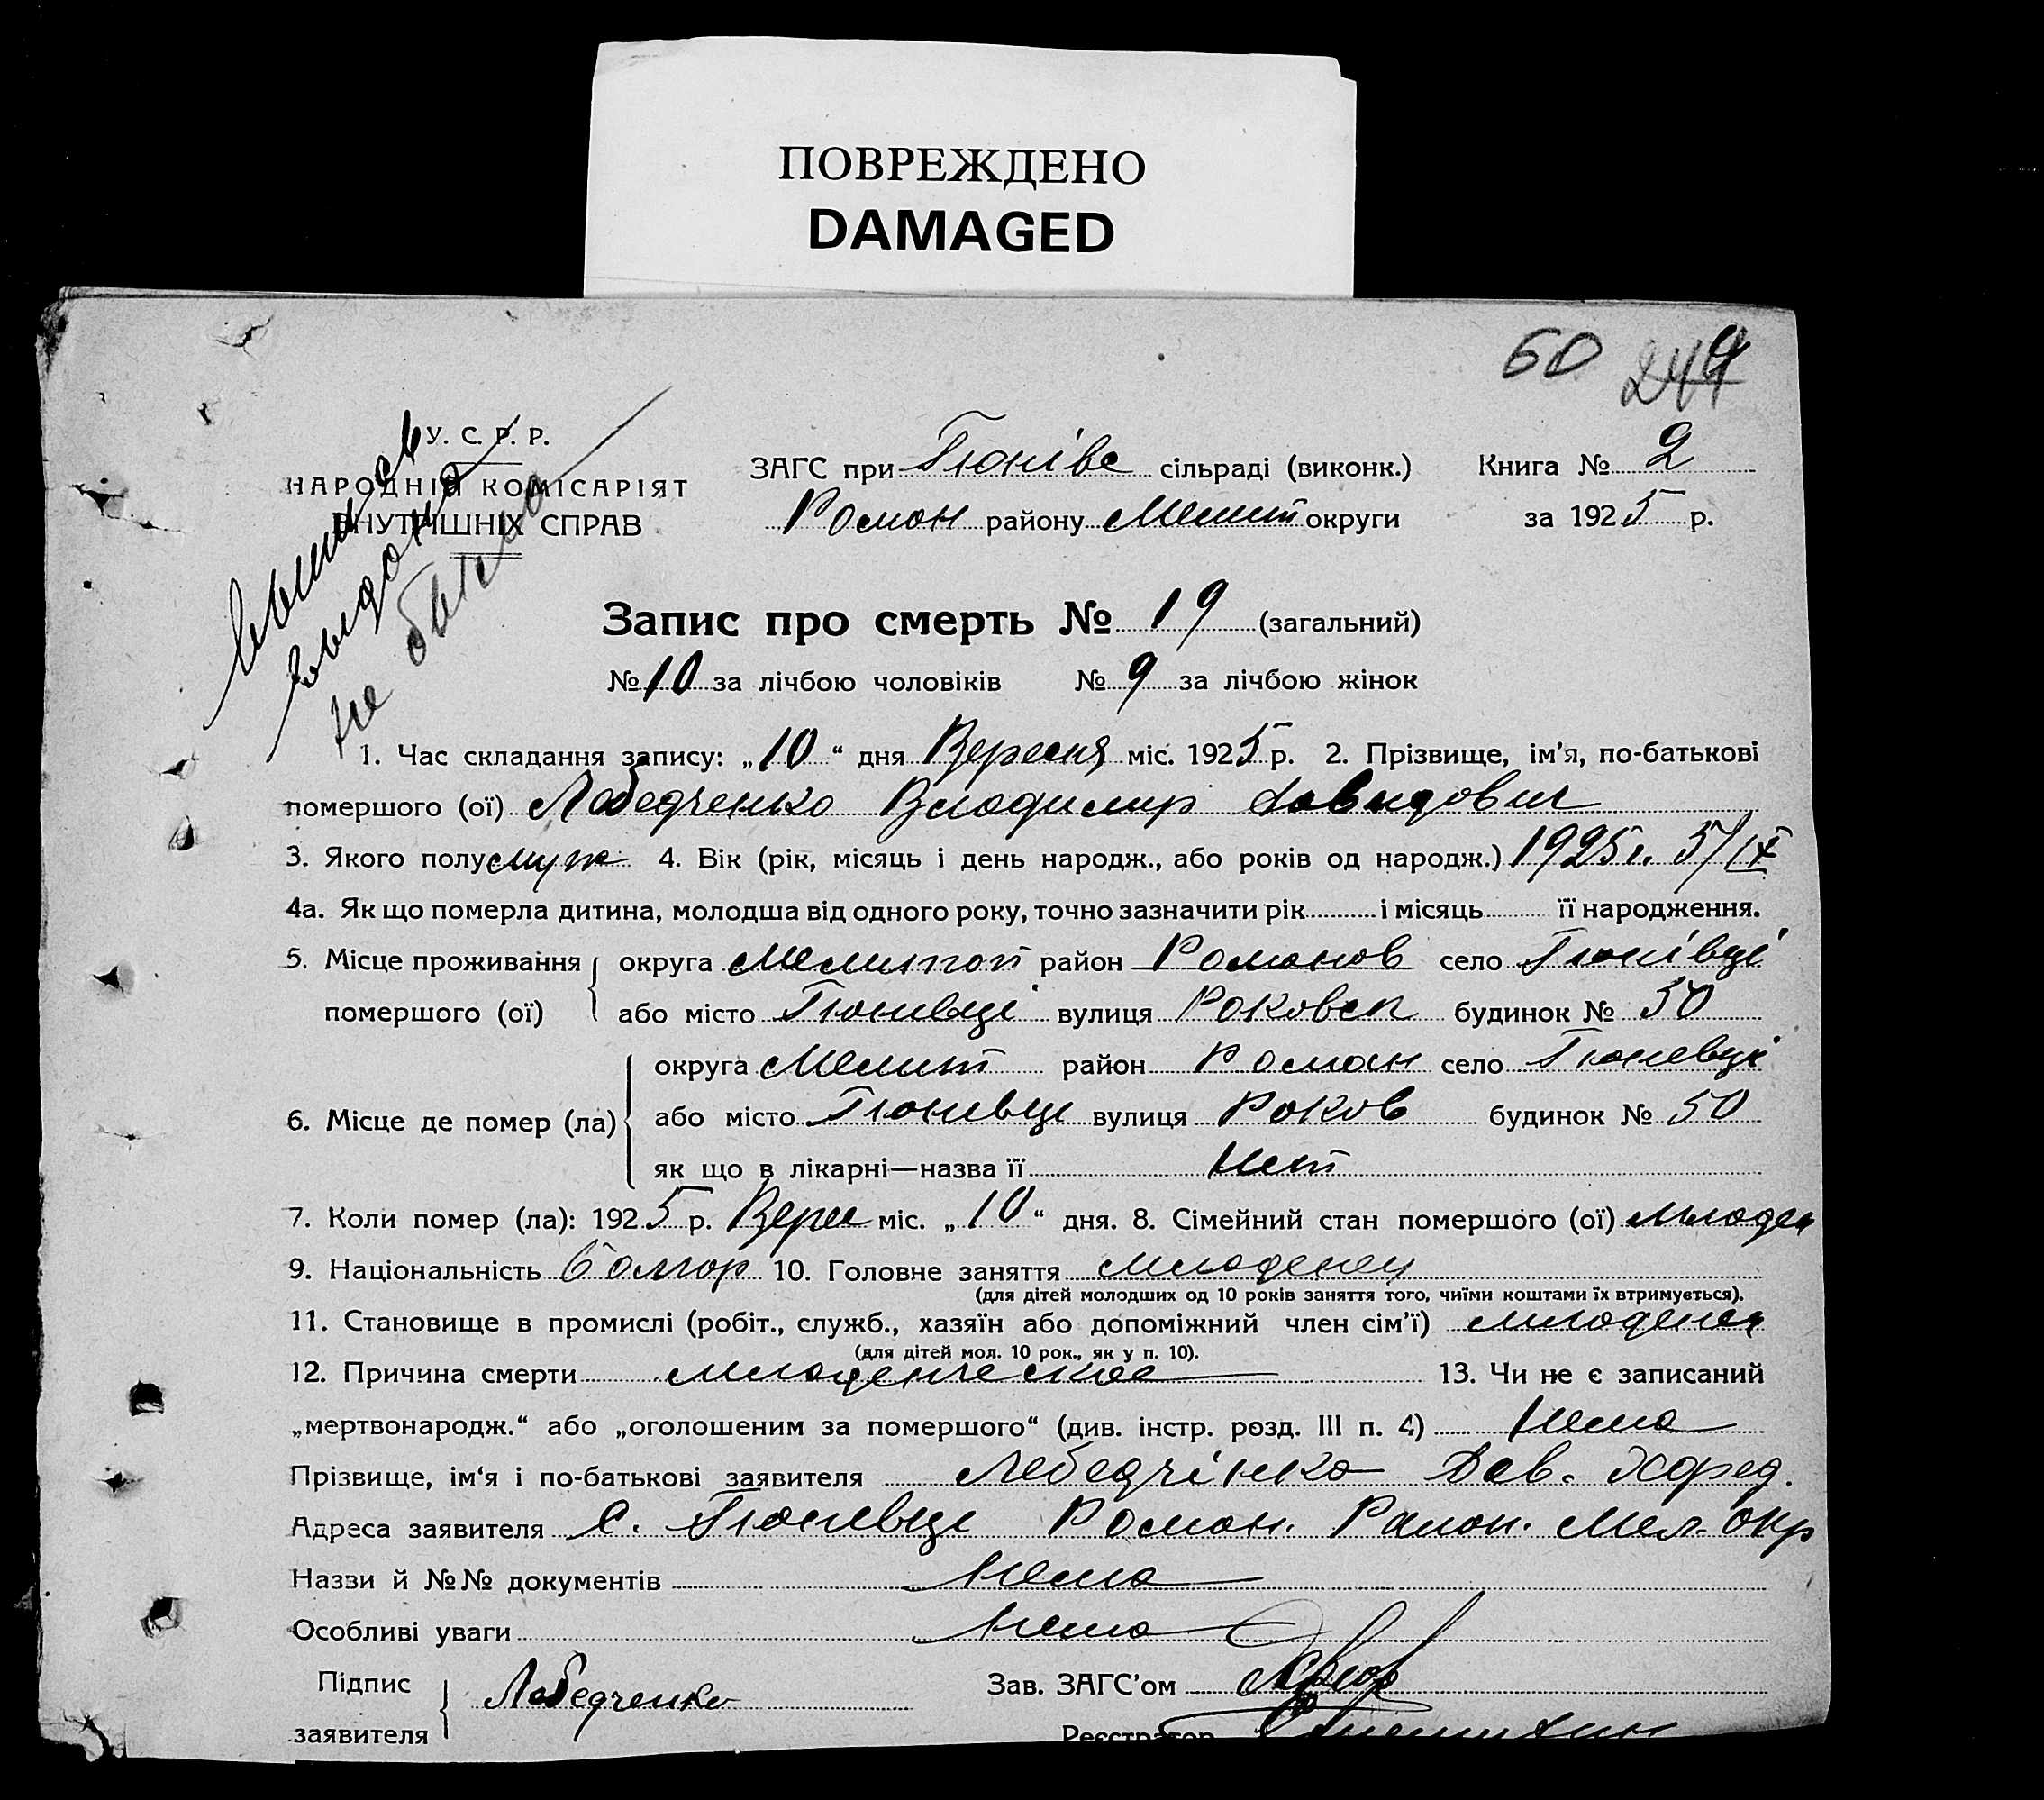 ПОВРЕЖДЕНО
DAMAGED
60 249
У. С. Р. Р.
НАРОДНІЙ КОМІСАРІЯТ
ВНУТРІШНІХ СПРАВ
не було
ЗАГС при Гюнівс сільраді (виконк.) Книга № 2
Роман району Мелит округи за 1925 р.
Запис про смерть № 19 (загальний)
№ 10 за лічбою чоловіків № 9 за лічбою жінок
1. Час складання запису: „10“ дня Вересня міс. 1925 р. 2. Прізвище, ім’я, по-батькові
помершого (ої) Лебедченко Владимир Давидович
3. Якого полу муж 4. Вік (рік, місяць і день народж., або років од народж.) 1925 г. 5/IX
4а. Як що померла дитина, молодша від одного року, точно зазначити рік і місяць її народження.
5. Місце проживання округа Мелитоп район Романов село Гюнівці
помершого (ої) або місто Гюневці вулиця будинок № 50
округа Мелит район Роман село Гюневці
6. Місце де помер (ла) або місто Гюневце вулиця будинок № 50
як що в лікарні—назва її Нет
7. Коли помер (ла): 1925 р. Вере міс. „10“ дня. 8. Сімейний стан помершого (ої) младен
9. Національність болгор 10. Головне заняття младенец
(для дітей молодших од 10 років заняття того, чиїми коштами їх втримується).
11. Становище в промислі (робіт., служб., хазяїн або допоміжний член сім’ї) младенец
(для дітей мол. 10 рок., як у п. 10).
12. Причина смерти младенческое 13. Чи не є записаний
„мертвонародж.“ або „оголошеним за помершого“ (див. інстр. розд. III п. 4) Нема
Прізвище, ім‘я і по-батькові заявителя Лебедчінко Дав.
Адреса заявителя С. Гюневце Роман. Район. Мел. Окр
Назви й №№ документів Нема
Особливі уваги Нема
Підпис Лебедченко Зав. ЗАГС’ом
заявителя Реєстратор